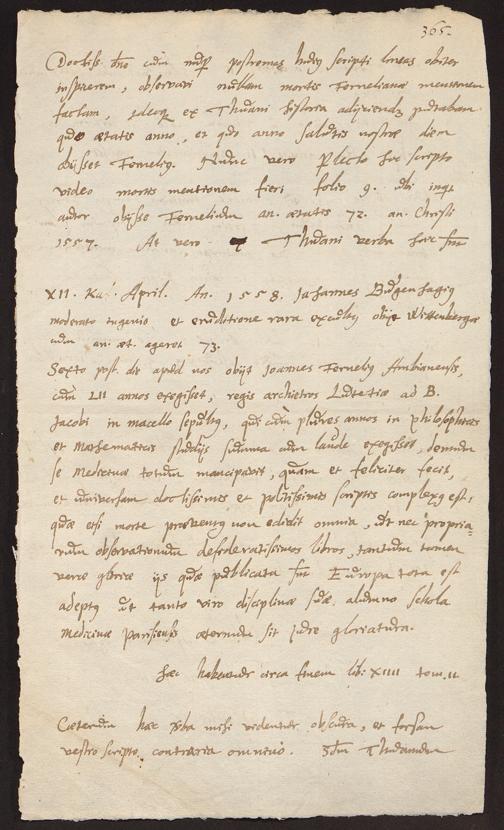 365.
Doctiss. dno cum nup postremas huius scripti lineas obiter
inspicerem, observavi nullam mortis Fernelianae mentionem
factam, idcq ex Thuani historia adijciendū putabam
quo aetatis anno, et quo anno salutis nostrae diem
obijsset Fernelius. Nunc vero plecto hoc scripto
video mortis mentionem fieri folio 9. ubi inqt
autor obijsse Fernelium an. aetatis 72. an. Christi
1557. At vero Thuani verba haec sunt
XII. Kal. April. An. 1558. Iohannes Bugenhagius
moderato ingenio et eruditione rara excultus obijt Wittenbergae
cum an. aet. ageret 73.
Sexto post die apud nos obijt Ioannes Fernelius Ambianensis,
cum LII annos exegisset, regis archietros Lutetiae ad B.
Jacobi in macello sepultus, qui cum plures annos in philosophicis
et mathematicis studijs summa cum laude exegisset, demum
se medicinae totum mancipavit, quam et feliciter fecit,
et universam doctissimis et politissimis scriptis complexus est,
quae etsi morte praeventus non edidit omnia, ut nec propria-
rum observationum desideratissimos libros, tantum tamen
verae gloriae ijs quae publicata sunt Europa tota est
adeptus ut tanto viro disciplinae suae alumno schola
medicinae parisiensis aeternum sit iure gloriatura.
haec habentur circa finem libri XIIII tom. II
Caeterum haec verba mihi videntur obscura, et forsan
vestro scripto contraria omnino. Thuanum